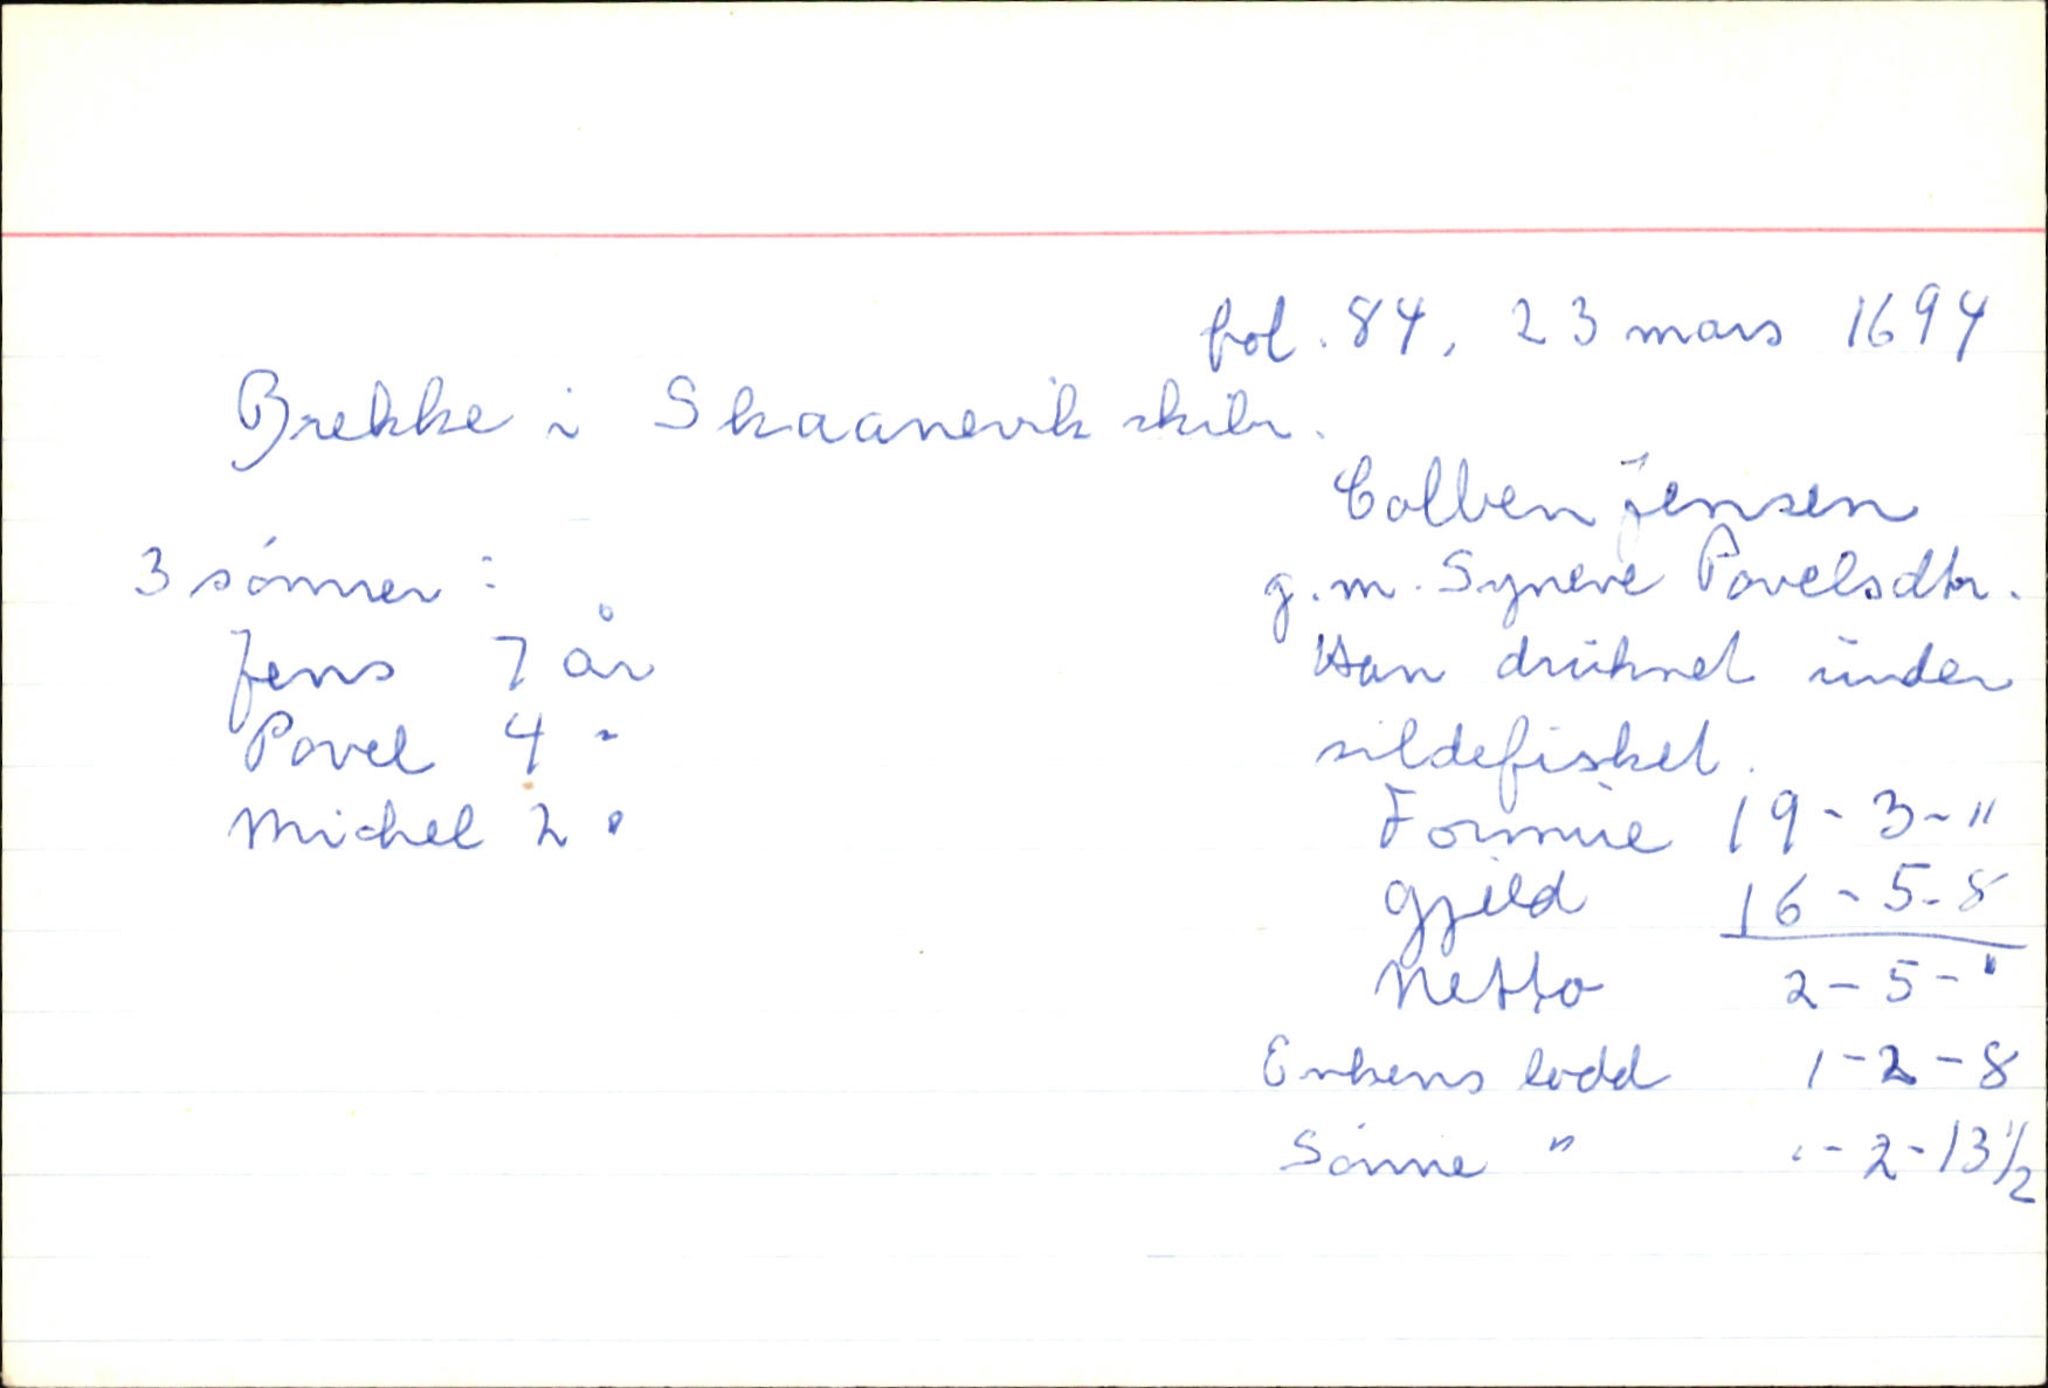 fol. 84, 23 mars 1694
Brekke i Skaanevik skibr.
Colben Jensen
g.m. Syneve Povelsdtr.
Han druknet under
sildefisket.
3 sónner:
Jens 7 år
Povel 4 "
Michel 2 "
Formue 19 - 3 - "
Gjeld 16 - 5 - 8
Netto 2 - 5 - "
Enkens lodd 1 - 2 - 8
Sónne " " - 2 - 13 1/2